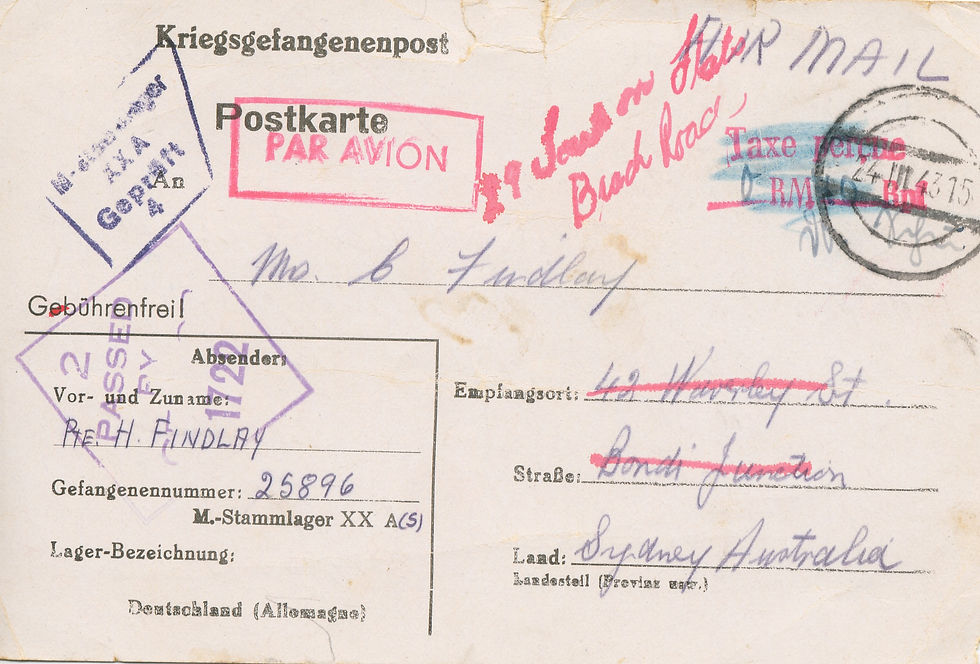 Kriegsgefangenenpost
AIR MAIL
M-Stammlager
XXA
Geprüft
4
Postkarte
PAR AVION
Beach Road,
Taxe perçue
RM Rpf
24 III 43 15
An
Mrs. C Findlay
Gebührenfrei!
2
PASSED
BY
1722
Absender:
Vor- und Zuname:
Pte. H. FINDLAY
Gefangenennummer: 25896
M.-Stammlager XX A(5)
Lager-Bezeichnung:
Deutschland (Allemagne)
Empfangsort: 42 Waverley St.
Straße: Bondi Junction
Land: Sydney Australia
Landesteil (Provinz usw.)